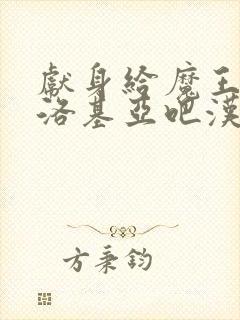 獻身給魔王
洛基亞吧漢
方秉鈞